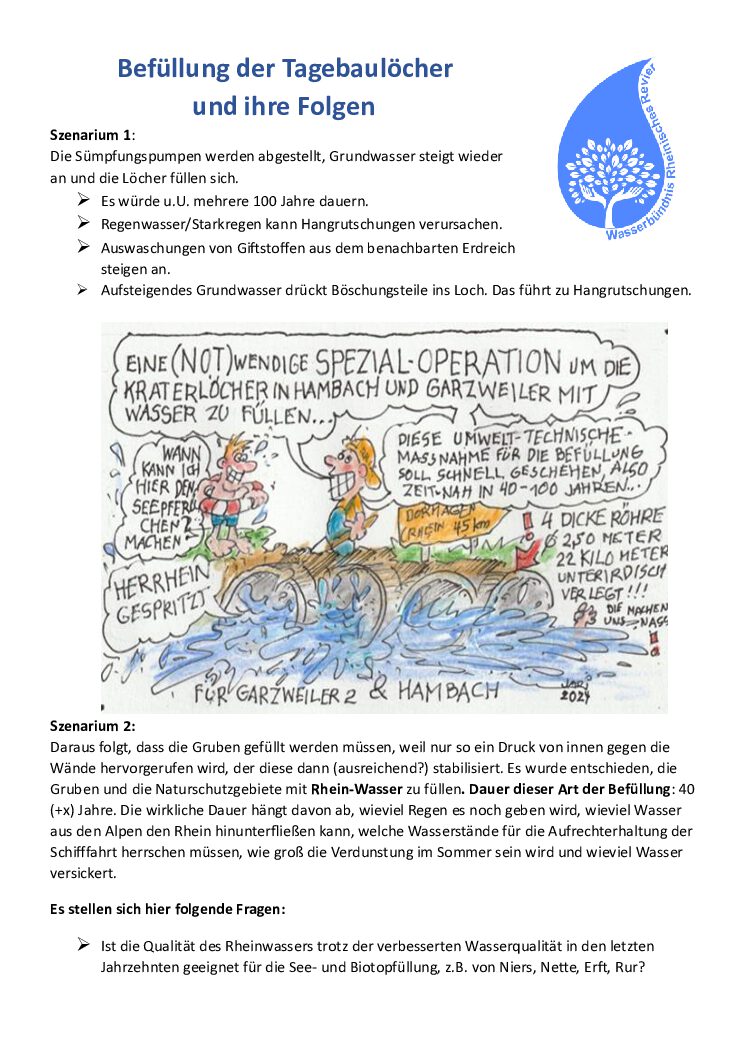 Befüllung der Tagebaulöcher
und ihre Folgen
Wasserbündnis Rheinisches Revier
Szenarium 1:
Die Sümpfungspumpen werden abgestellt, Grundwasser steigt wieder
an und die Löcher füllen sich.
➢ Es würde u.U. mehrere 100 Jahre dauern.
➢ Regenwasser/Starkregen kann Hangrutschungen verursachen.
➢ Auswaschungen von Giftstoffen aus dem benachbarten Erdreich
steigen an.
➢ Aufsteigendes Grundwasser drückt Böschungsteile ins Loch. Das führt zu Hangrutschungen.
EINE (NOT)WENDIGE SPEZIAL-OPERATION UM DIE
KRATERLÖCHER IN HAMBACH UND GARZWEILER MIT
WASSER ZU FÜLLEN...
WANN
KANN ICH
HIER DEN
SEEPFERD
CHEN
MACHEN?
DIESE UMWELT-TECHNISCHE-
MASSNAHME FÜR DIE BEFÜLLUNG
SOLL SCHNELL GESCHEHEN, ALSO
ZEIT-NAH IN 40-100 JAHREN...
DORMAGEN
(RHEIN 45 km
4 DICKE RÖHRE
Ø 2,50 METER
22 KILO METER
UNTERIRDISCH
VERLEGT!!!
DIE MACHEN
UNS NASS
HERRHEIN
GESPRITZT
FÜR GARZWEILER 2 & HAMBACH
JARI
2024
Szenarium 2:
Daraus folgt, dass die Gruben gefüllt werden müssen, weil nur so ein Druck von innen gegen die
Wände hervorgerufen wird, der diese dann (ausreichend?) stabilisiert. Es wurde entschieden, die
Gruben und die Naturschutzgebiete mit Rhein-Wasser zu füllen. Dauer dieser Art der Befüllung: 40
(+x) Jahre. Die wirkliche Dauer hängt davon ab, wieviel Regen es noch geben wird, wieviel Wasser
aus den Alpen den Rhein hinunterfließen kann, welche Wasserstände für die Aufrechterhaltung der
Schifffahrt herrschen müssen, wie groß die Verdunstung im Sommer sein wird und wieviel Wasser
versickert.
Es stellen sich hier folgende Fragen:
➢ Ist die Qualität des Rheinwassers trotz der verbesserten Wasserqualität in den letzten
Jahrzehnten geeignet für die See- und Biotopfüllung, z.B. von Niers, Nette, Erft, Rur?